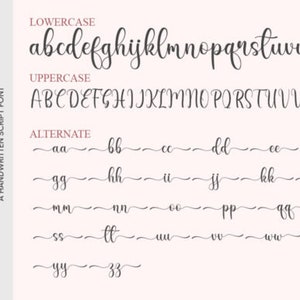 A HANDWRITTEN SCRIPT FONT
LOWERCASE
abcdefghijklmnopqrstuv
UPPERCASE
ABCDEFGHIJKLMNOPQRSTUV
ALTERNATE
aa bb cc dd ee
gg hh ii jj kk
mm nn oo pp qq
ss tt uu vv ww
yy zz